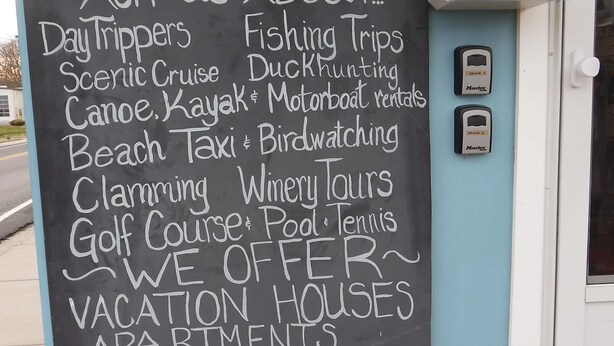 ASK US ABOUT...
Day Trippers Fishing Trips
Scenic Cruise Duckhunting
Canoe, Kayak & Motorboat rentals
Beach Taxi & Birdwatching
Clamming Winery Tours
Golf Course & Pool & Tennis
~WE OFFER~
VACATION HOUSES
APARTMENTS
Master
Master